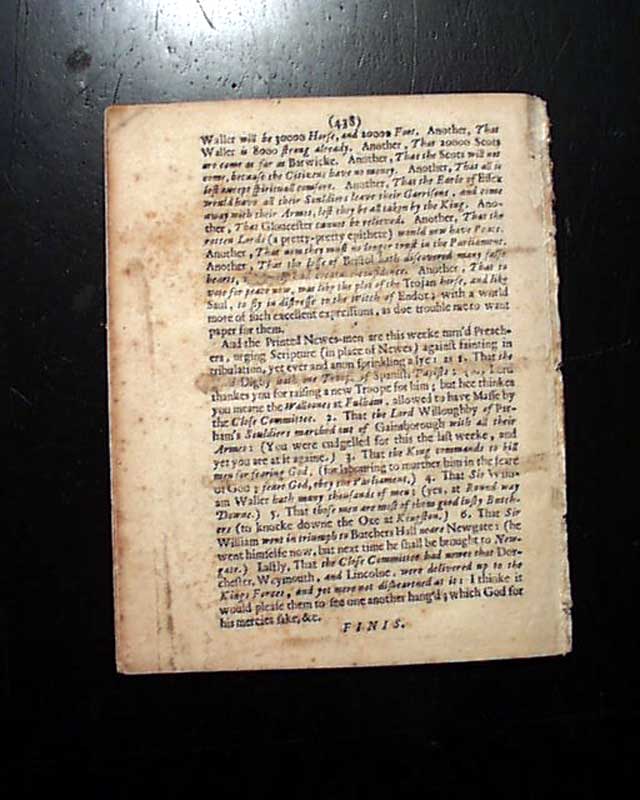 (438)
Waller will be 30000 Horse, and 20000 Foot. Another, That
Waller is 8000 strong already. Another, That 20000 Scots
are come as far as Barwicke. Another, That the Scots will not
come, because the Citizens have no money. Another, That all is
lost except spirituall comfort. Another, That the Earle of Essex
would have all their Souldiers leave their Garrisons, and come
away with their Armes, lest they be all taken by the King. Ano-
ther, That Gloucester cannot be relieved. Another, That the
rotten Lords (a pretty-pretty epithete) would now have Peace.
Another, That now they must no longer trust in the Parliament.
Another, That the losse of Bristol hath discovered many false
hearts, Another, That to
vote for peace now, was like the plot of the Trojan horse, and like
Saul, to fly in distresse to the Witch of Endor; with a world
more of such excellent expressions, as doe trouble me to want
paper for them.
And the Printed Newes-men are this weeke turn'd Preach-
ers, urging Scripture (in place of Newes) against fainting in
tribulation, yet ever and anon sprinkling a lye: as 1. That the
Lord Digby hath one Troope of Spanish Papists: (my Lord
thankes you for raising a new Troope for him; but hee thinkes
you meane the Walloones at Fulham, allowed to have Masse by
the Close Committee. 2. That the Lord Willoughby of Par-
ham's Souldiers marched out of Gainsborough with all their
Armes: (You were cudgelled for this the last weeke, and
yet you are at it againe.) 3. That the King commands to kill
men for fearing God. (for labouring to murther him in the feare
of God; feare God, obey the Parliament.) 4. That Sir Willi-
am Waller hath many thousands of men; (yes, at Round way
Downe.) 5. That those men are most of them good lusty Butch-
ers (to knocke downe the Oxe at Kingston.) 6. That Sir
William went in triumph to Butchers Hall neare Newgate: (he
went himselfe now, but next time he shall be brought to New-
gate.) Lastly, That the Close Committee had newes that Dor-
chester, Weymouth, and Lincolne, were delivered up to the
Kings Forces, and yet were not disheartned at it: I thinke it
would please them to see one another hang'd; which God for
his mercies sake, &c.
FINIS.